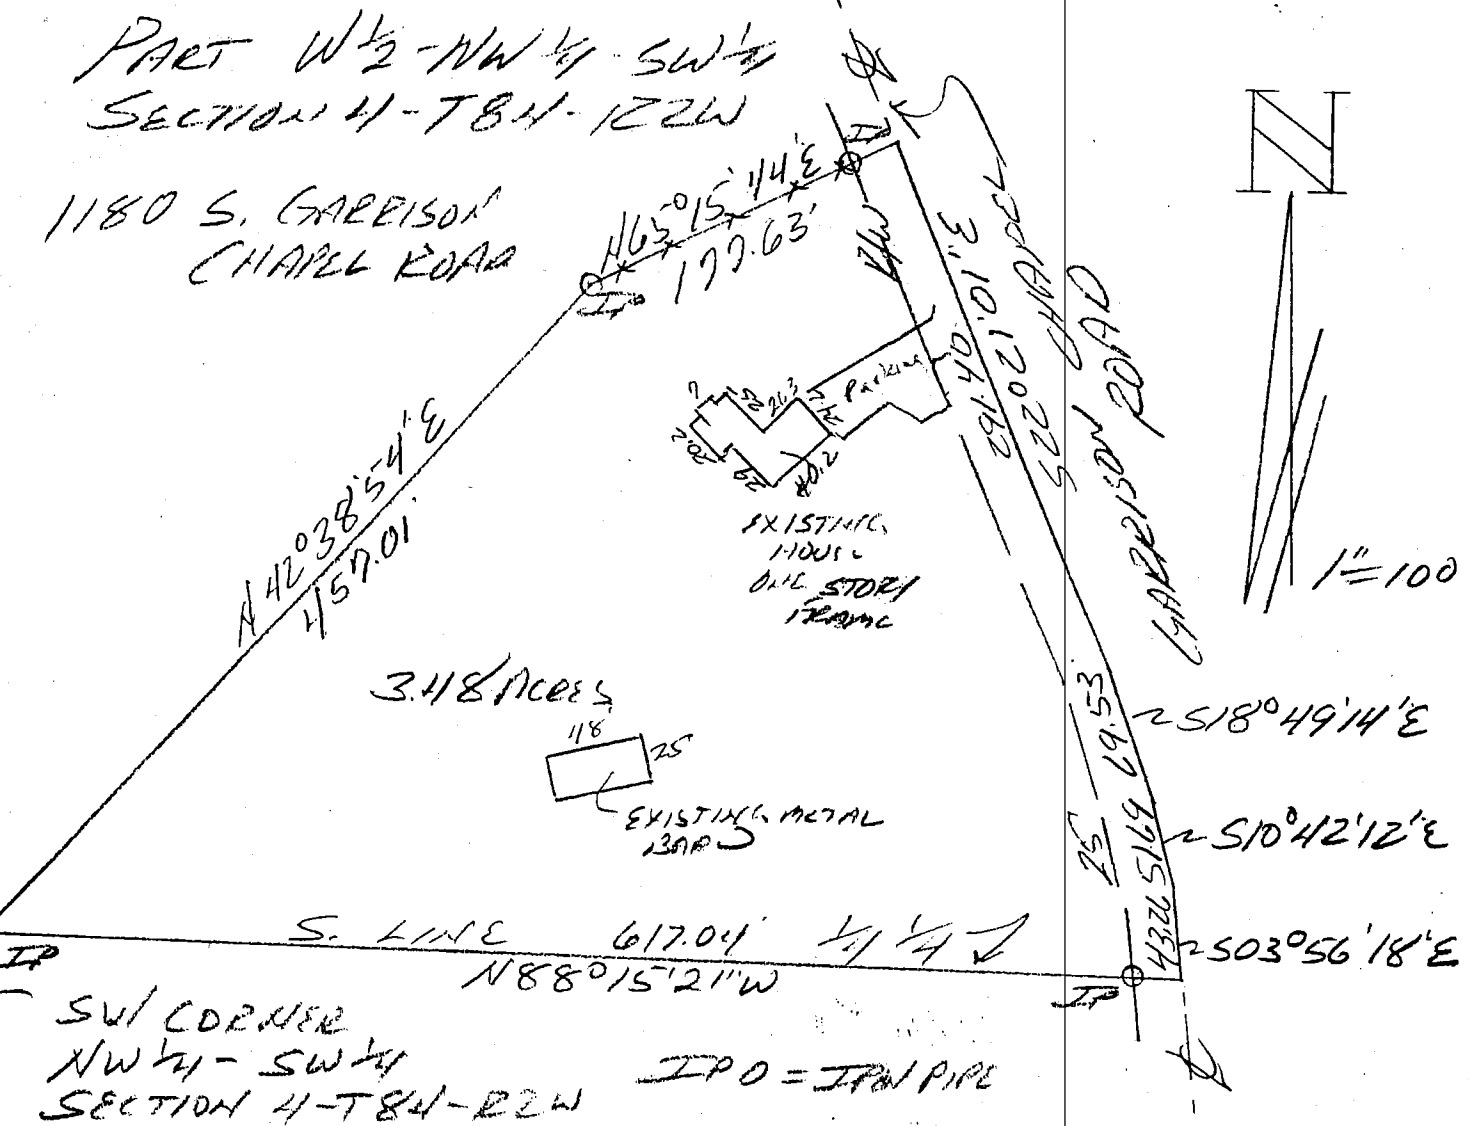 PART W½-NW¼-SW¼
SECTION 4-T8N-R2W
1180 S. GARRISON
CHAPEL ROAD
N
1"=100
℄
IP
N65°15'44"E
177.63'
IP
R/W
S22°12'01"E
291.40
GARRISON CHAPEL
ROAD
N42°38'54"E
457.01'
Parking
7
28
26.3
24.2
20.2
29
40.2
EXISTING
HOUSE
ONE STORY
FRAME
3.48 ACRES
48
25
EXISTING METAL
BARN
69.53
S18°49'14"E
51.69
S10°42'12"E
25
43.26
S03°56'18"E
S. LINE 617.04' ¼ ¼
N88°15'21"W
IP
IP
SW CORNER
NW¼-SW¼
SECTION 4-T8N-R2W
IP O = IRON PIPE
℄